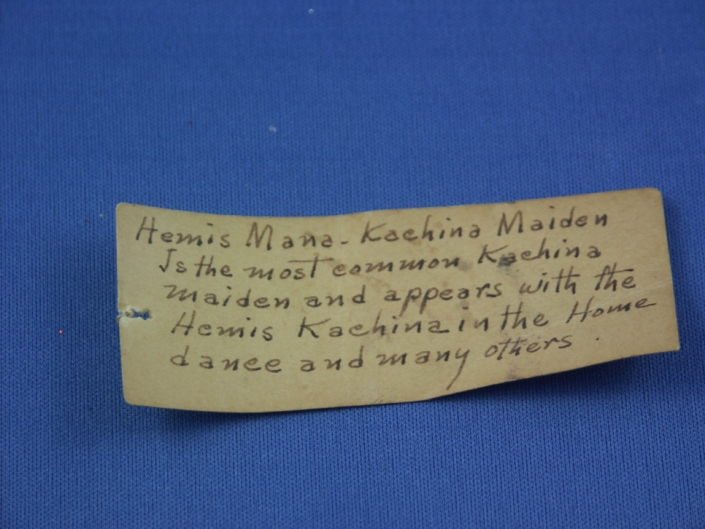 Hemis Mana - Kachina Maiden
Is the most common Kachina
maiden and appears with the
Hemis Kachina in the Home
dance and many others.